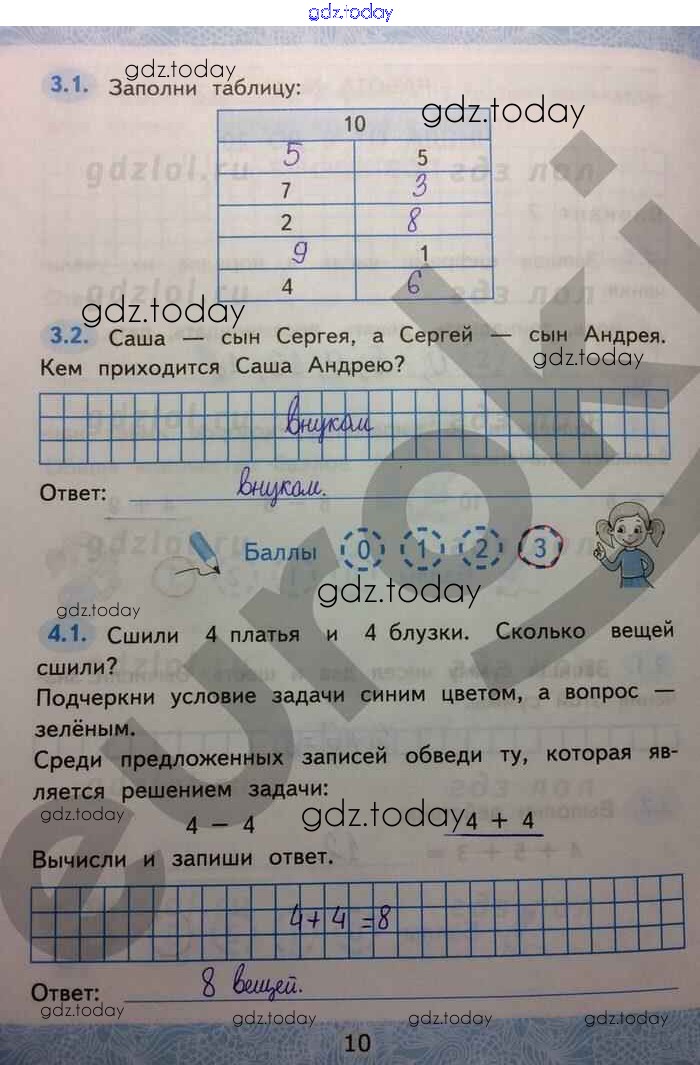 gdz.today
gdz.today
3.1. Заполни таблицу:
gdz.today
10
5 5
7 3
2 8
9 1
4 6
gdz.today
3.2. Саша — сын Сергея, а Сергей — сын Андрея.
gdz.today
Кем приходится Саша Андрею?
внуком
Ответ: внуком.
Баллы 0 1 2 3
gdz.today
gdz.today
4.1. Сшили 4 платья и 4 блузки. Сколько вещей
сшили?
Подчеркни условие задачи синим цветом, а вопрос —
зелёным.
Среди предложенных записей обведи ту, которая яв-
ляется решением задачи:
gdz.today gdz.today gdz.today
4 − 4 4 + 4
Вычисли и запиши ответ.
4+4=8
Ответ: 8 вещей.
gdz.today gdz.today gdz.today gdz.today
10
euroki